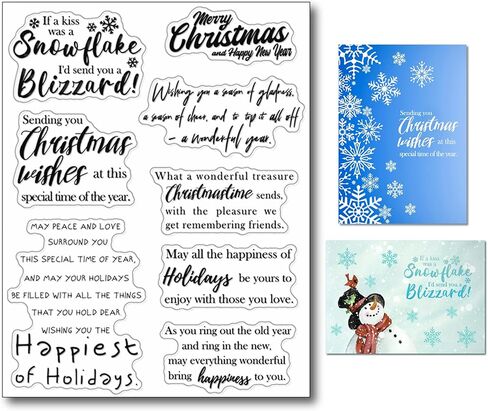 If a kiss
was a
Snowflake
I'd send you a
Blizzard!
Merry
Christmas
and Happy New Year
Wishing you a season of gladness,
a season of cheer, and to top it all off
– a wonderful year.
Sending you
Christmas
wishes at this
special time of the year.
What a wonderful treasure
Christmastime sends,
with the pleasure we
get remembering friends.
MAY PEACE AND LOVE
SURROUND YOU
THIS SPECIAL TIME OF YEAR,
AND MAY YOUR HOLIDAYS
BE FILLED WITH ALL THE THINGS
THAT YOU HOLD DEAR
WISHING YOU THE
Happiest
of Holidays.
May all the happiness of
Holidays be yours to
enjoy with those you love.
As you ring out the old year
and ring in the new,
may everything wonderful
bring happiness to you.
Sending you
Christmas
wishes at this
special time of the year.
If a kiss
was a
Snowflake
I'd send you a
Blizzard!